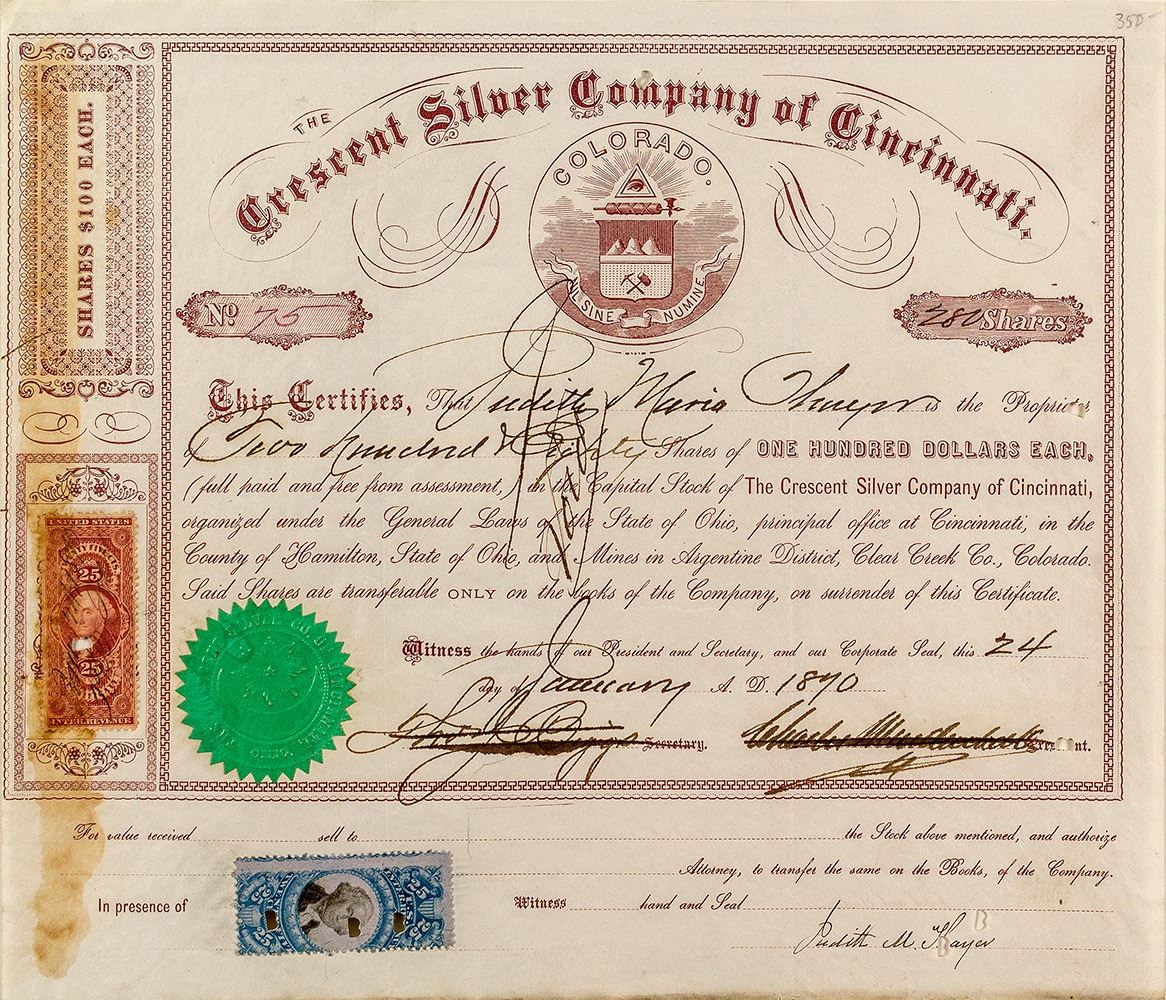 350-
THE
Crescent Silver Company of Cincinnati.
COLORADO.
NIL SINE NUMINE
SHARES $100 EACH.
No 75
280 Shares
This Certifies, That Judith Maria Thayer is the Proprietor
of Two Hundred & Eighty Shares of ONE HUNDRED DOLLARS EACH,
(full paid and free from assessment,) in the Capital Stock of The Crescent Silver Company of Cincinnati,
organized under the General Laws of the State of Ohio, principal office at Cincinnati, in the
County of Hamilton, State of Ohio, and Mines in Argentine District, Clear Creek Co., Colorado.
Said Shares are transferable ONLY on the books of the Company, on surrender of this Certificate.
UNITED STATES
25
25
INTER. REVENUE
Witness the hands of our President and Secretary, and our Corporate Seal, this 24
day of January A. D. 1870
Secretary.
President.
For value received sell to the Stock above mentioned, and authorize
Attorney, to transfer the same on the Books, of the Company.
In presence of
Witness hand and Seal
25
25
25
Judith M. Thayer